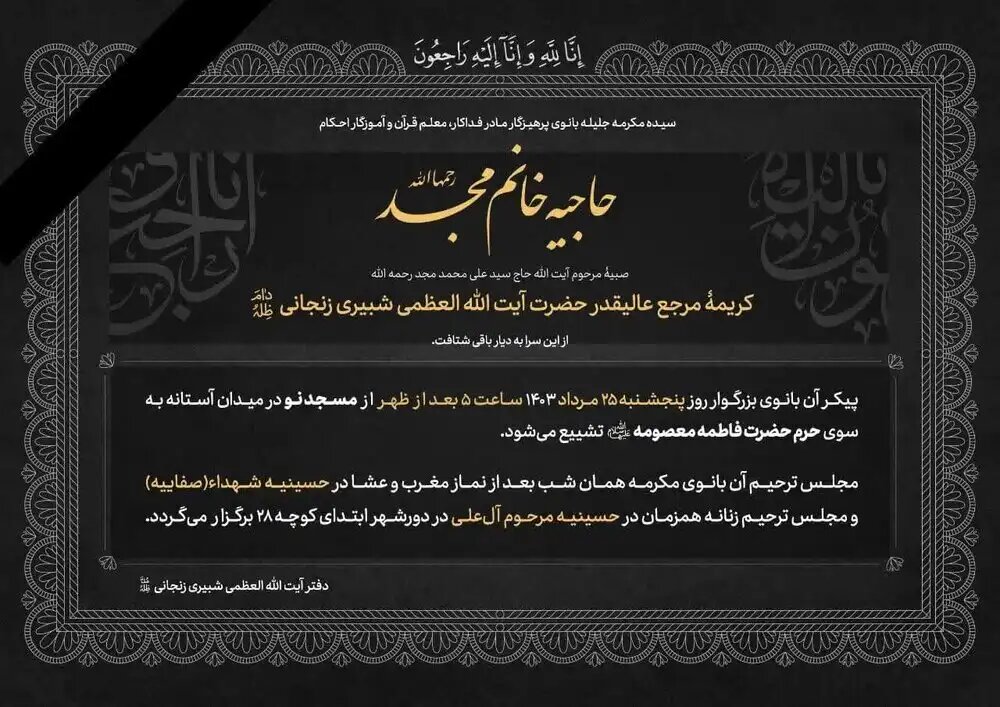 إِنَّا لِلَّٰهِ وَ إِنَّآ إِلَيْهِ رَاجِعُونَ
سیده مکرمه جلیله بانوی پرهیزگار مادر فداکار، معلم قرآن و آموزگار احکام
حاجیه خانم مجد رحمها الله
صبیهٔ مرحوم آیت الله حاج سید علی محمد مجد رحمه الله
کریمهٔ مرجع عالیقدر حضرت آیت الله العظمی شبیری زنجانی دام ظله
از این سرا به دیار باقی شتافت.
پیکر آن بانوی بزرگوار روز پنجشنبه ۲۵ مرداد ۱۴۰۳ ساعت ۵ بعد از ظهر از مسجد نو در میدان آستانه به
سوی حرم حضرت فاطمه معصومه تشییع می‌شود.
مجلس ترحیم آن بانوی مکرمه همان شب بعد از نماز مغرب و عشا در حسینیه شهداء(صفاییه)
و مجلس ترحیم زنانه همزمان در حسینیه مرحوم آل‌علی در دورشهر ابتدای کوچه ۲۸ برگزار می‌گردد.
دفتر آیت الله العظمی شبیری زنجانی